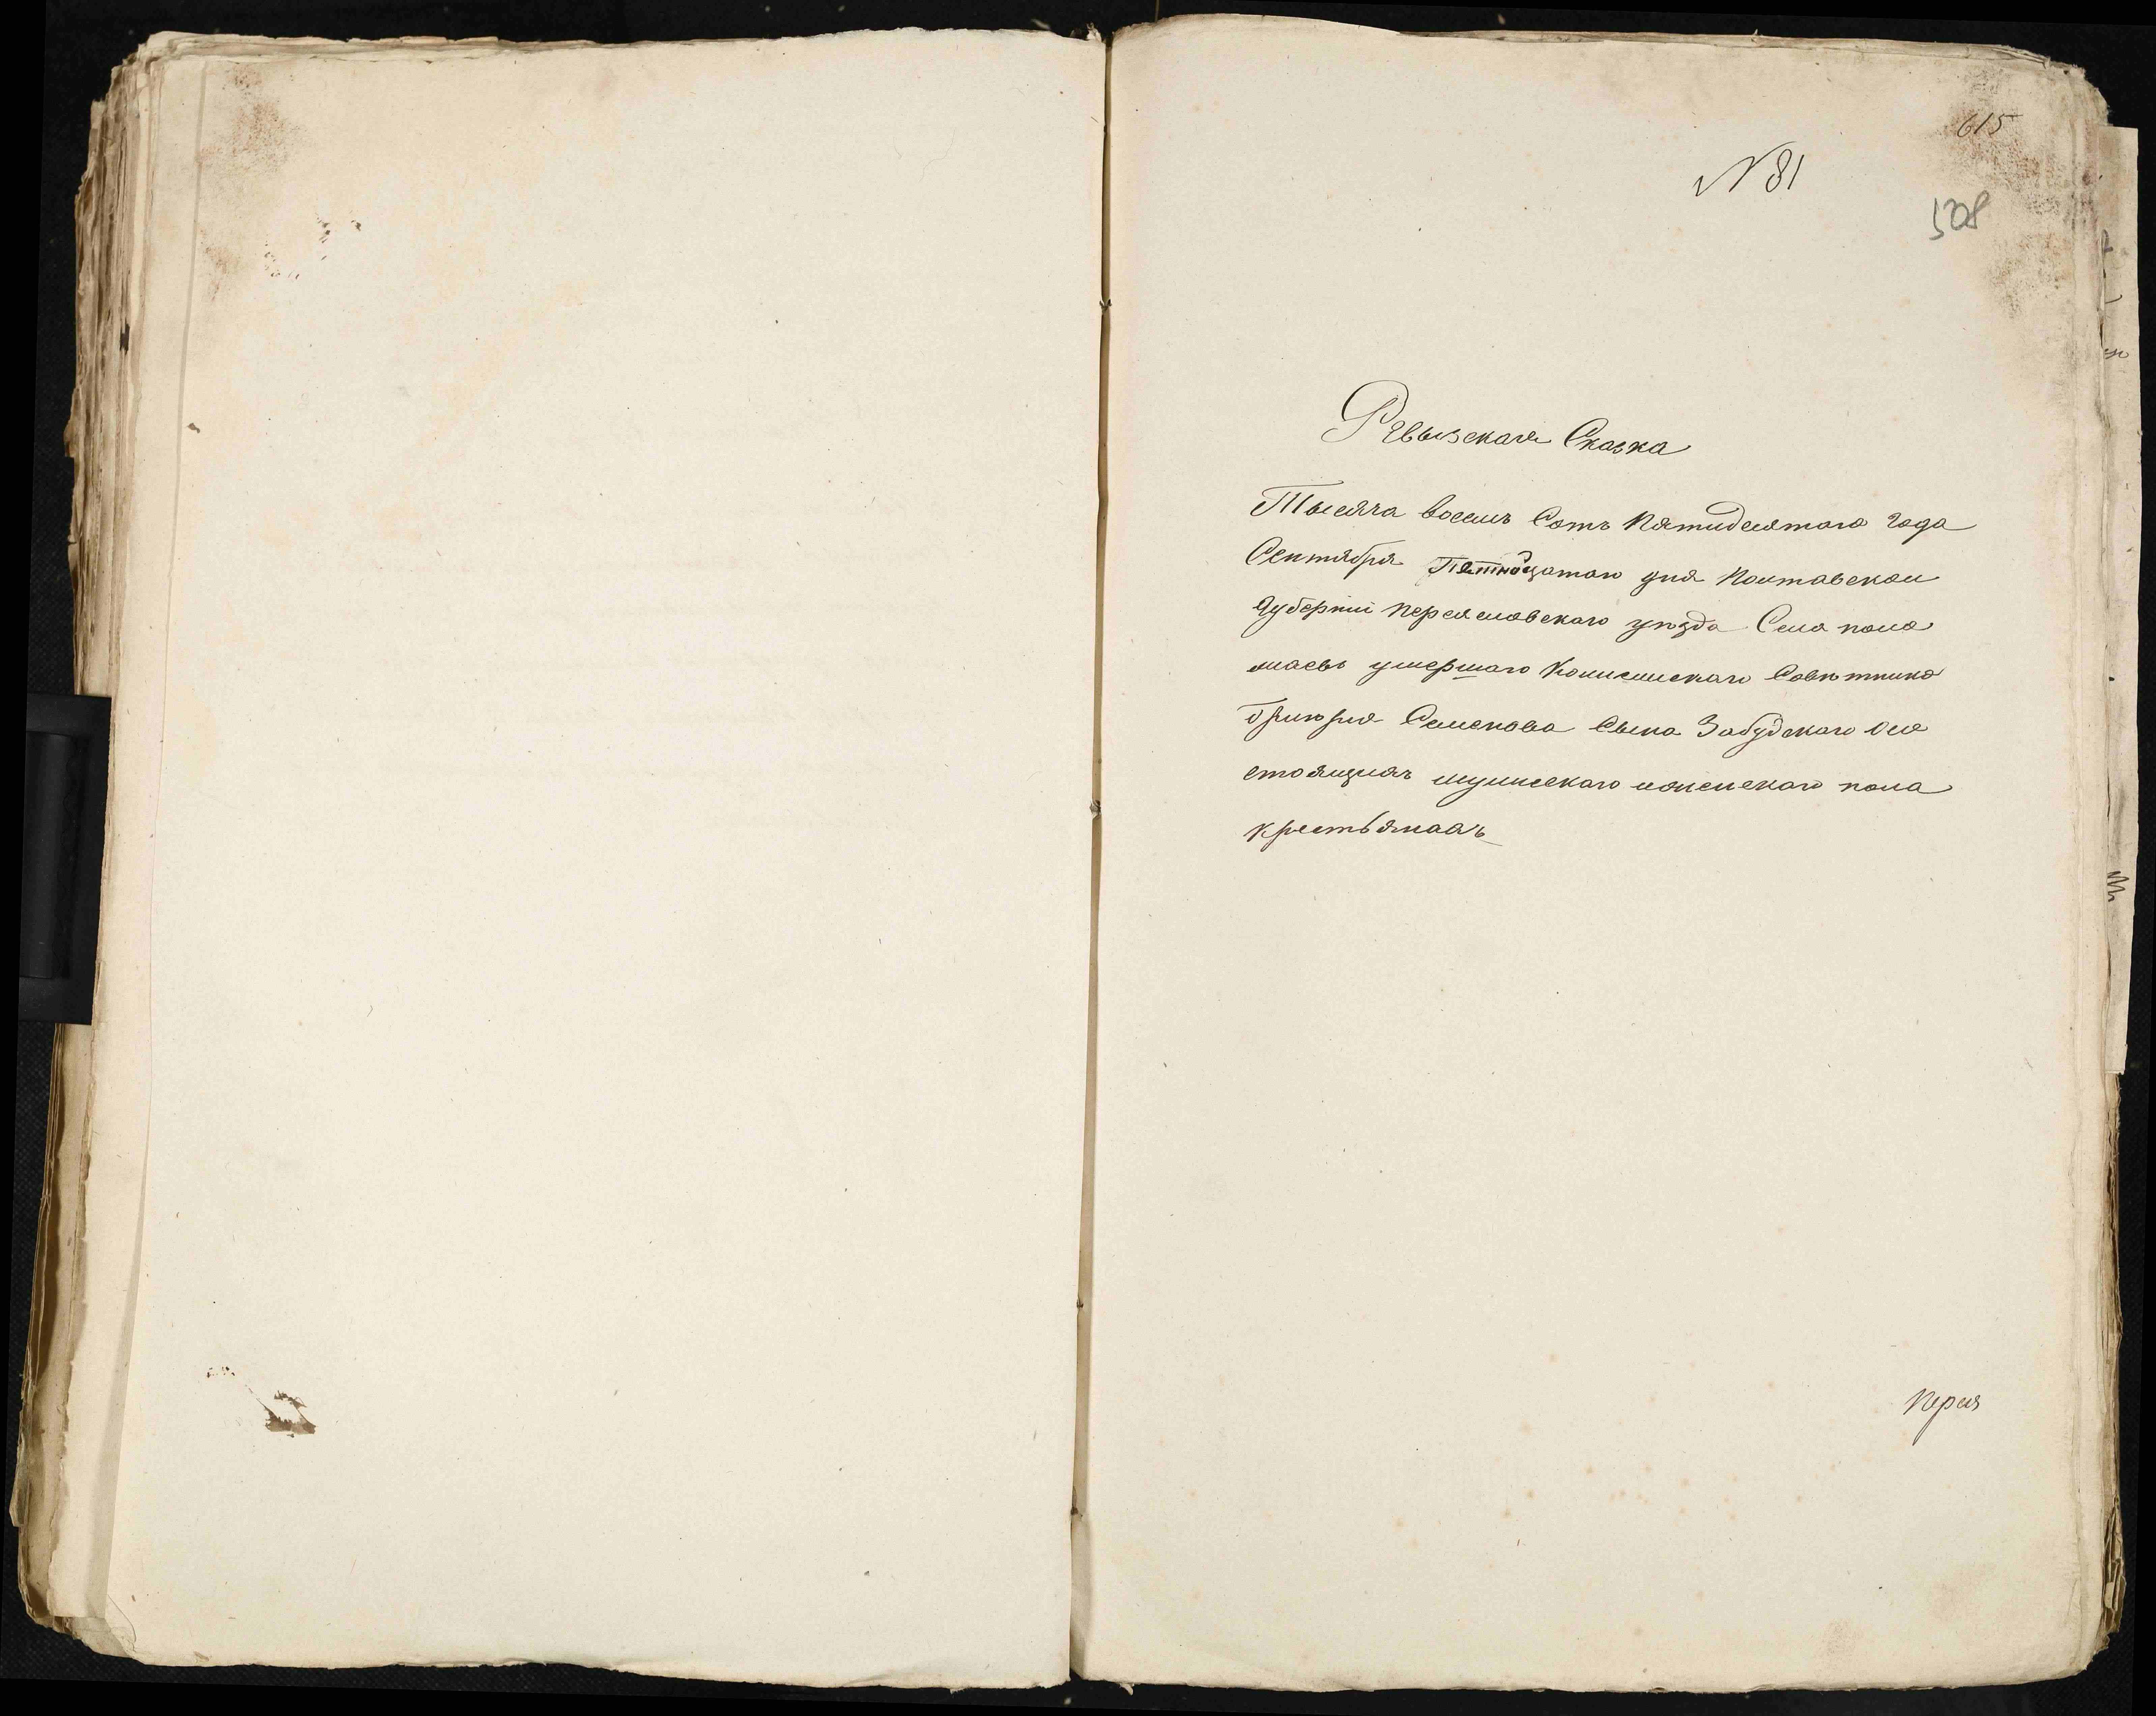 615
№ 81
508
Ревызская Сказка
Тысяча восемъ Сотъ Пятидесятого года
Сентября Петнадцатаго дня Полтавской
Губернии Переяславскаго уезда Села поло
умершаго Совѣтника
Григория Семенова Сына Забудскаго осо
стоящихъ мужескаго иженскаго пола
крестьянахъ
Перея